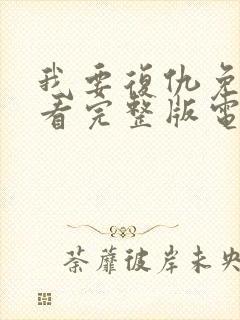 我要復仇免
看完整版電
荼蘼彼岸未央